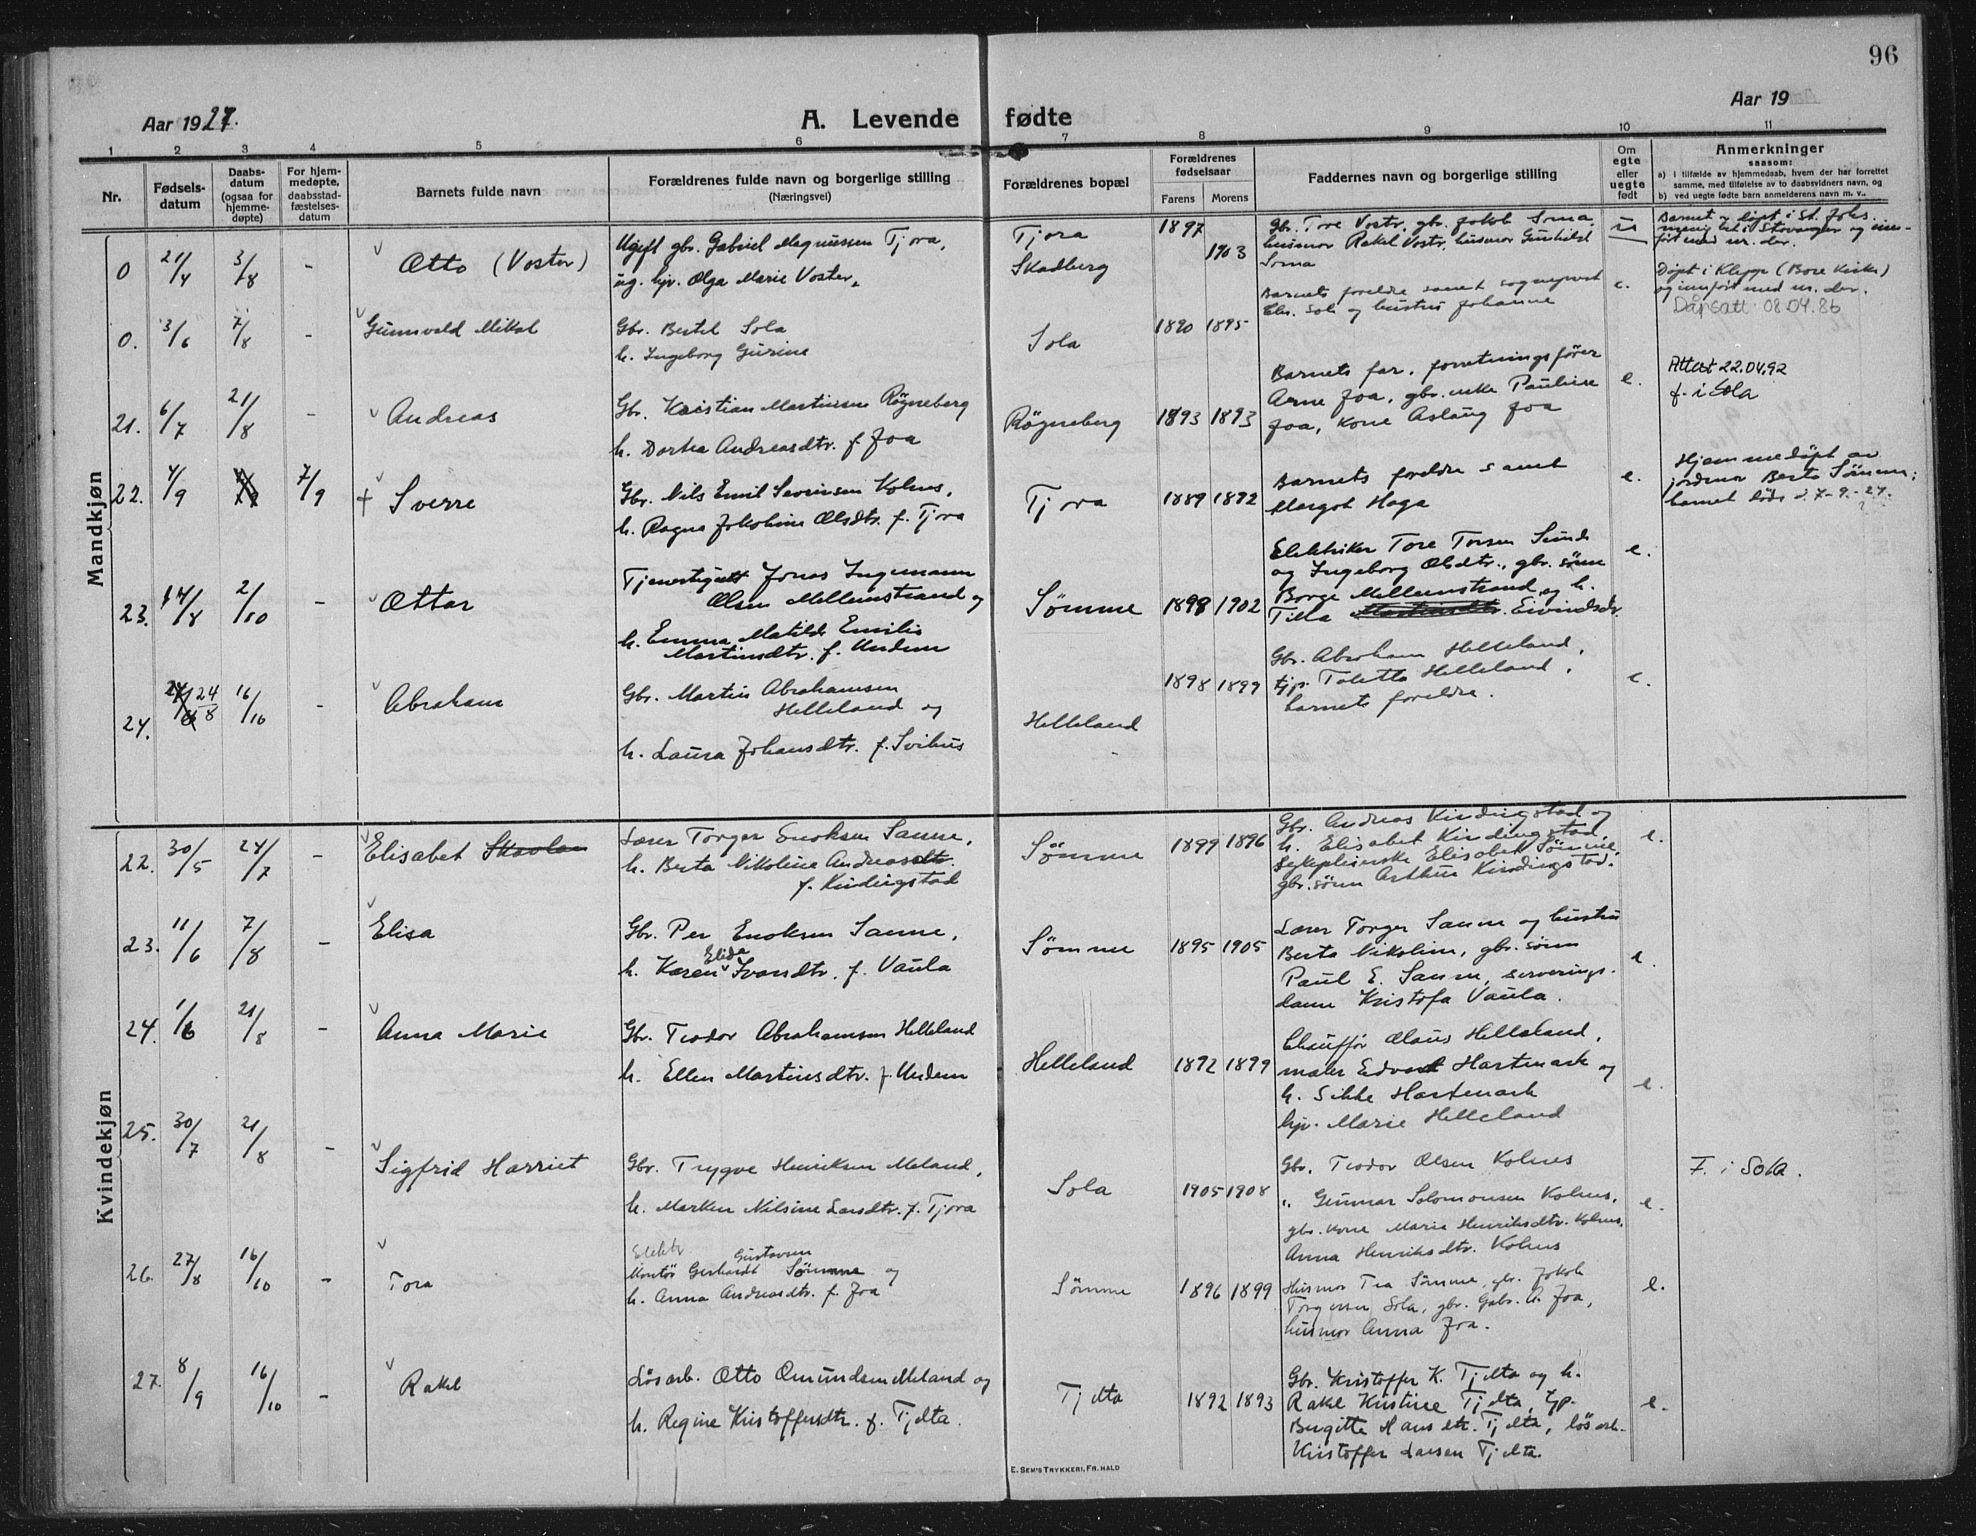 96
Aar 1927.
A. Levende fødte
Aar 19
1 2 3 4 5 6 7 8 9 10 11
Nr.
Fødsels-
datum
Daabs-
datum
(ogsaa for
hjemme-
døpte)
For hjem-
medøpte,
daabsstad-
fæstelses-
datum
Barnets fulde navn
Forældrenes fulde navn og borgerlige stilling
(Næringsvei)
Forældrenes bopæl
Forældrenes
fødselsaar
Farens Morens
Faddernes navn og borgerlige stilling
Om
egte
eller
uegte
født
Anmerkninger
saasom:
a) i tilfælde av hjemmedaab, hvem der har forrettet
samme, med tilføielse av to daabsvidners navn, og
b) ved uegte fødte barn anmelderens navn m. v.
Mandkjøn
0 21/4 3/8 - Otto (Voster)
Ugift gbr. Gabriel Magnussen Tjora,
ug. hjv. Olga Marie Voster.
Tjora
Skadberg
1897
1903
Gbr. Tore Vostr, gbr. Jakob Soma
husmor Rakel Vostr, husmor Gunhild
Soma
u
Barnet er døpt i St. Johs.
menighet i Stavanger og inn-
ført med nr. der.
0. 3/6 7/8 - Gunnvald Mikal
Gbr. Bertil Sola
h. Ingeborg Gurine
Sola
1890 1895
Barnets foreldre samt sogneprest
Chr. Sol. og hustru Johanne
e.
Døpt i Klepp (Bore kirke)
og innført med nr. der.
Dåpsatt. 08.04.86
21. 6/7 21/8 - Andreas
Gbr. Kristian Martinsen Røgneberg
h. Dortea Andreasdtr. f. Joa
Røgneberg
1893 1893
Barnets far, forretningsfører
Arne Joa, gbr. enke Pauline
Joa, kone Aslaug Joa
e.
Attest 22.04.92
f. i Sola
22. 4/9 7/9 † Sverre
Gbr. Nils Emil Severinsen Kolnes,
h. Ragna Jakobine Olsdtr. f. Tjora
Tjora
1889 1892
Barnets foreldre samt
Margot Haga
e.
Hjemmedøpt av
jordmor Berta Sømme;
barnet døde d. 7-9.-27.
23. 14/8 2/10 - Ottar
Tjenestegutt Jonas Ingemann
Olsen Mellemstrand og
h. Emma Matilde Emilie
Martinsdtr. f. Undem
Sømme
1898 1902
Elektriker Tore Torsen Sunde
og Ingeborg Olsdtr., gbr. sønn
Borge Mellemstrand og h.
Tilla Martinsdtr. Eivindsdtr.
e.
24. 24/8 16/10 - Abraham
Gbr. Martin Abrahamsen
Helleland og
h. Laura Johansdtr. f. Svihus
Helleland
1898 1899
Gbr. Abraham Helleland,
tjp. Taletta Helleland,
barnets foreldre.
e.
Kvindekjøn
22. 30/5 24/7 - Elisabet Skavlan
Lærer Torger Enoksen Sanne,
h. Berta Nikoline Andreasdtr.
f. Kindingstad
Sømme
1899 1896
Gbr. Andreas Kindingstad og
h. Elisabet Kindingstad,
sykepleierske Elisabet Sømme,
gbr. sønn Arthur Kindingstad.
e.
23. 11/6 7/8 - Elisa
Gbr. Per Enoksen Sanne,
h. Karen Elida Ivarsdtr. f. Vaula
Sømme
1895 1905
Lærer Torger Sanne og hustru
Berta Nikoline, gbr. sønn
Paul E. Sanne, serverings-
dame Kristofa Vaula.
e.
24. 1/6 21/8 - Anna Marie
Gbr. Teodor Abrahamsen Helleland
h. Ellen Martinsdtr. f. Undem
Helleland
1892 1899
Chauffør Olaus Helleland,
maler Edvart Hartmark og
h. Sikke Hartmark
hjv. Marie Helleland
e.
25. 30/7 21/8 - Sigfrid Harriet
Gbr. Trygve Henriksen Meland,
h. Marken Nilsine Larsdtr. f. Tjora
Sola
1905 1908
Gbr. Teodor Olsen Kolnes
" Gunnar Salomonsen Kolnes,
gbr. kone Marie Henriksdtr. Kolnes,
Anna Henriksdtr. Kolnes
e.
F. i Sola.
26. 27/8 16/10 - Tora
Elektr.
Montør Gerhardt Gustavsen Sømme og
h. Anna Andreasdtr. f. Joa
Sømme
1896 1899
Husmor Tea Sømme, gbr. Jakob
Torgersen Sola, gbr. Gabr. A. Joa,
husmor Anna Joa.
e.
27. 8/9 16/10 - Rakel
Løsarb. Otto Omundsen Meland og
h. Regine Kristoffersdtr. f. Tjelta.
Tjelta
1892 1893
Gbr. Kristoffer K. Tjelta og h.
Rakel Kristine Tjelta, tjp.
Birgitte Hansdtr. Tjelta, løsarb.
Kristoffer Larsen Tjelta.
e.
E. SEM'S TRYKKERI, FR. HALD